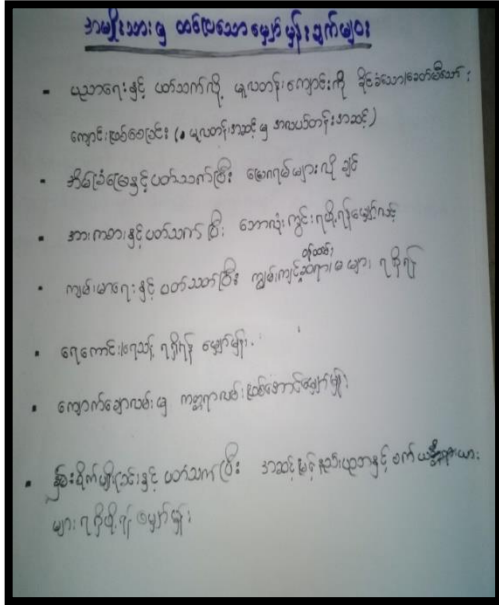 အမျိုးသားမှ ထပ်ပြောသော မျှော်မှန်းချက်များ
- ပညာရေးနှင့် ပတ်သက်လို့ မူလတန်းကျောင်းကို ခိုင်ခံသော၊ခေတ်မီသော
ကျောင်းဖြစ်စေခြင်း (မူလတန်းအဆင့်မှ အလယ်တန်းအဆင့်)
- အိမ်ခြံမြေနှင့်ပတ်သက်ပြီး များလိုချင်
- အားကစားနှင့်ပတ်သက်ပြီး ဘောလုံးကွင်းရဖို့ရန်မျှော်လင့်
- ကျမ်းမာရေးနှင့် ပတ်သတ်ပြီး ကျွမ်းကျင်ဝန်ထမ်းဆရာ၊မ များ ရဖို့ရန်
- ရေကောင်းရေသန့် ရရှိရန် မျှော်မှန်း
- ကျောက်ချောလမ်းမှ ကတ္တရာလမ်းဖြစ်အောင်မျှော်မှန်း
- စိုက်ပျိုးခြင်းနှင့် ပတ်သက်ပြီး အဆင့်မြင့်နည်းပညာနှင့်စက်ယန္တရားယား
များ ရရှိဖို့ရန် မျှော်မှန်း